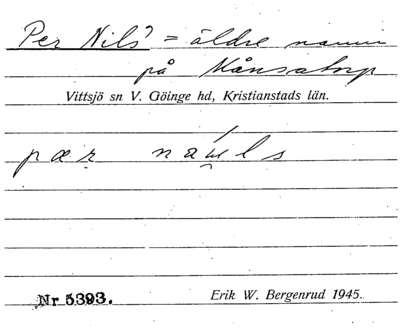 Per Nils' = äldre namn
på Månsatorp
Vittsjö sn V. Göinge hd, Kristianstads län.
pær
Nr 5393.
Erik W. Bergenrud 1945.